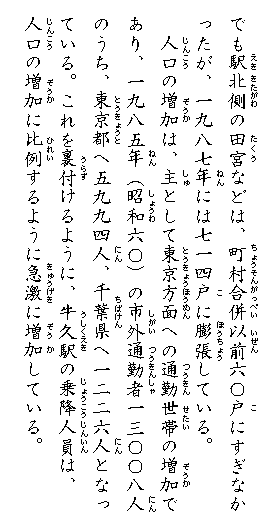 でも駅北側の田宮などは、町村合併以前六〇戸にすぎなか
ったが、一九八七年には七一四戸に膨張している。
人口の増加は、主として東京方面への通勤世帯の増加で
あり、一九八五年（昭和六〇）の市外通勤者一三〇〇八人
のうち、東京都へ五九九四人、千葉県へ一二二六人となっ
ている。これを裏付けるように、牛久駅の乗降人員は、
人口の増加に比例するように急激に増加している。